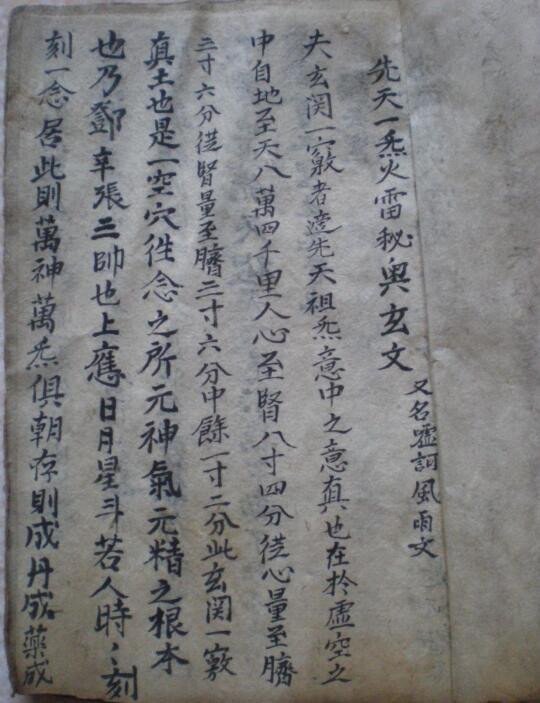 先天一炁火雷秘奥玄文
又名嘘訶風雨文
夫玄関一竅者遠先天祖炁意中之意真也在於虚空之
中自地至天八萬四千里人心至腎八寸四分従心量至臍
三寸六分従腎量至臍三寸六分中餘一寸二分此玄関一竅
真土也是一空穴徃念之所元神氣元精之根本
也乃鄧辛張三帥也上應日月星斗若人時〻刻
刻一念居此則萬神萬炁俱朝存則成丹成藥成